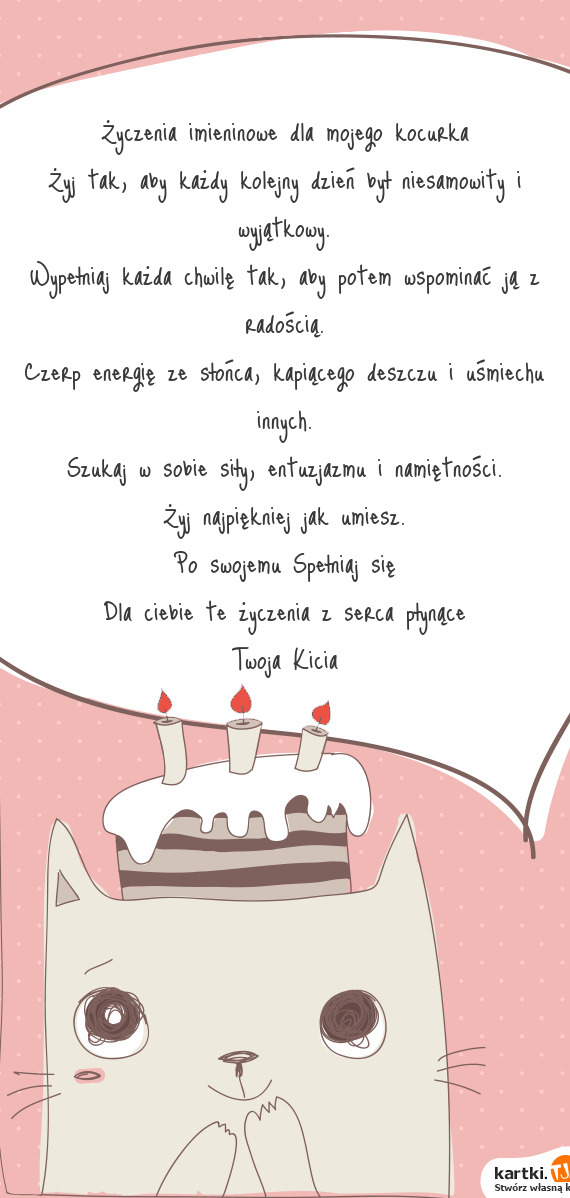 Życzenia imieninowe dla mojego kocurka
Żyj tak, aby każdy kolejny dzień był niesamowity i
wyjątkowy.
Wypełniaj każda chwilę tak, aby potem wspominać ją z
radością.
Czerp energię ze słońca, kapiącego deszczu i uśmiechu
innych.
Szukaj w sobie siły, entuzjazmu i namiętności.
Żyj najpiękniej jak umiesz.
Po swojemu Spełniaj się
Dla ciebie te życzenia z serca płynące
Twoja Kicia
kartki.TJ
Stwórz własną k